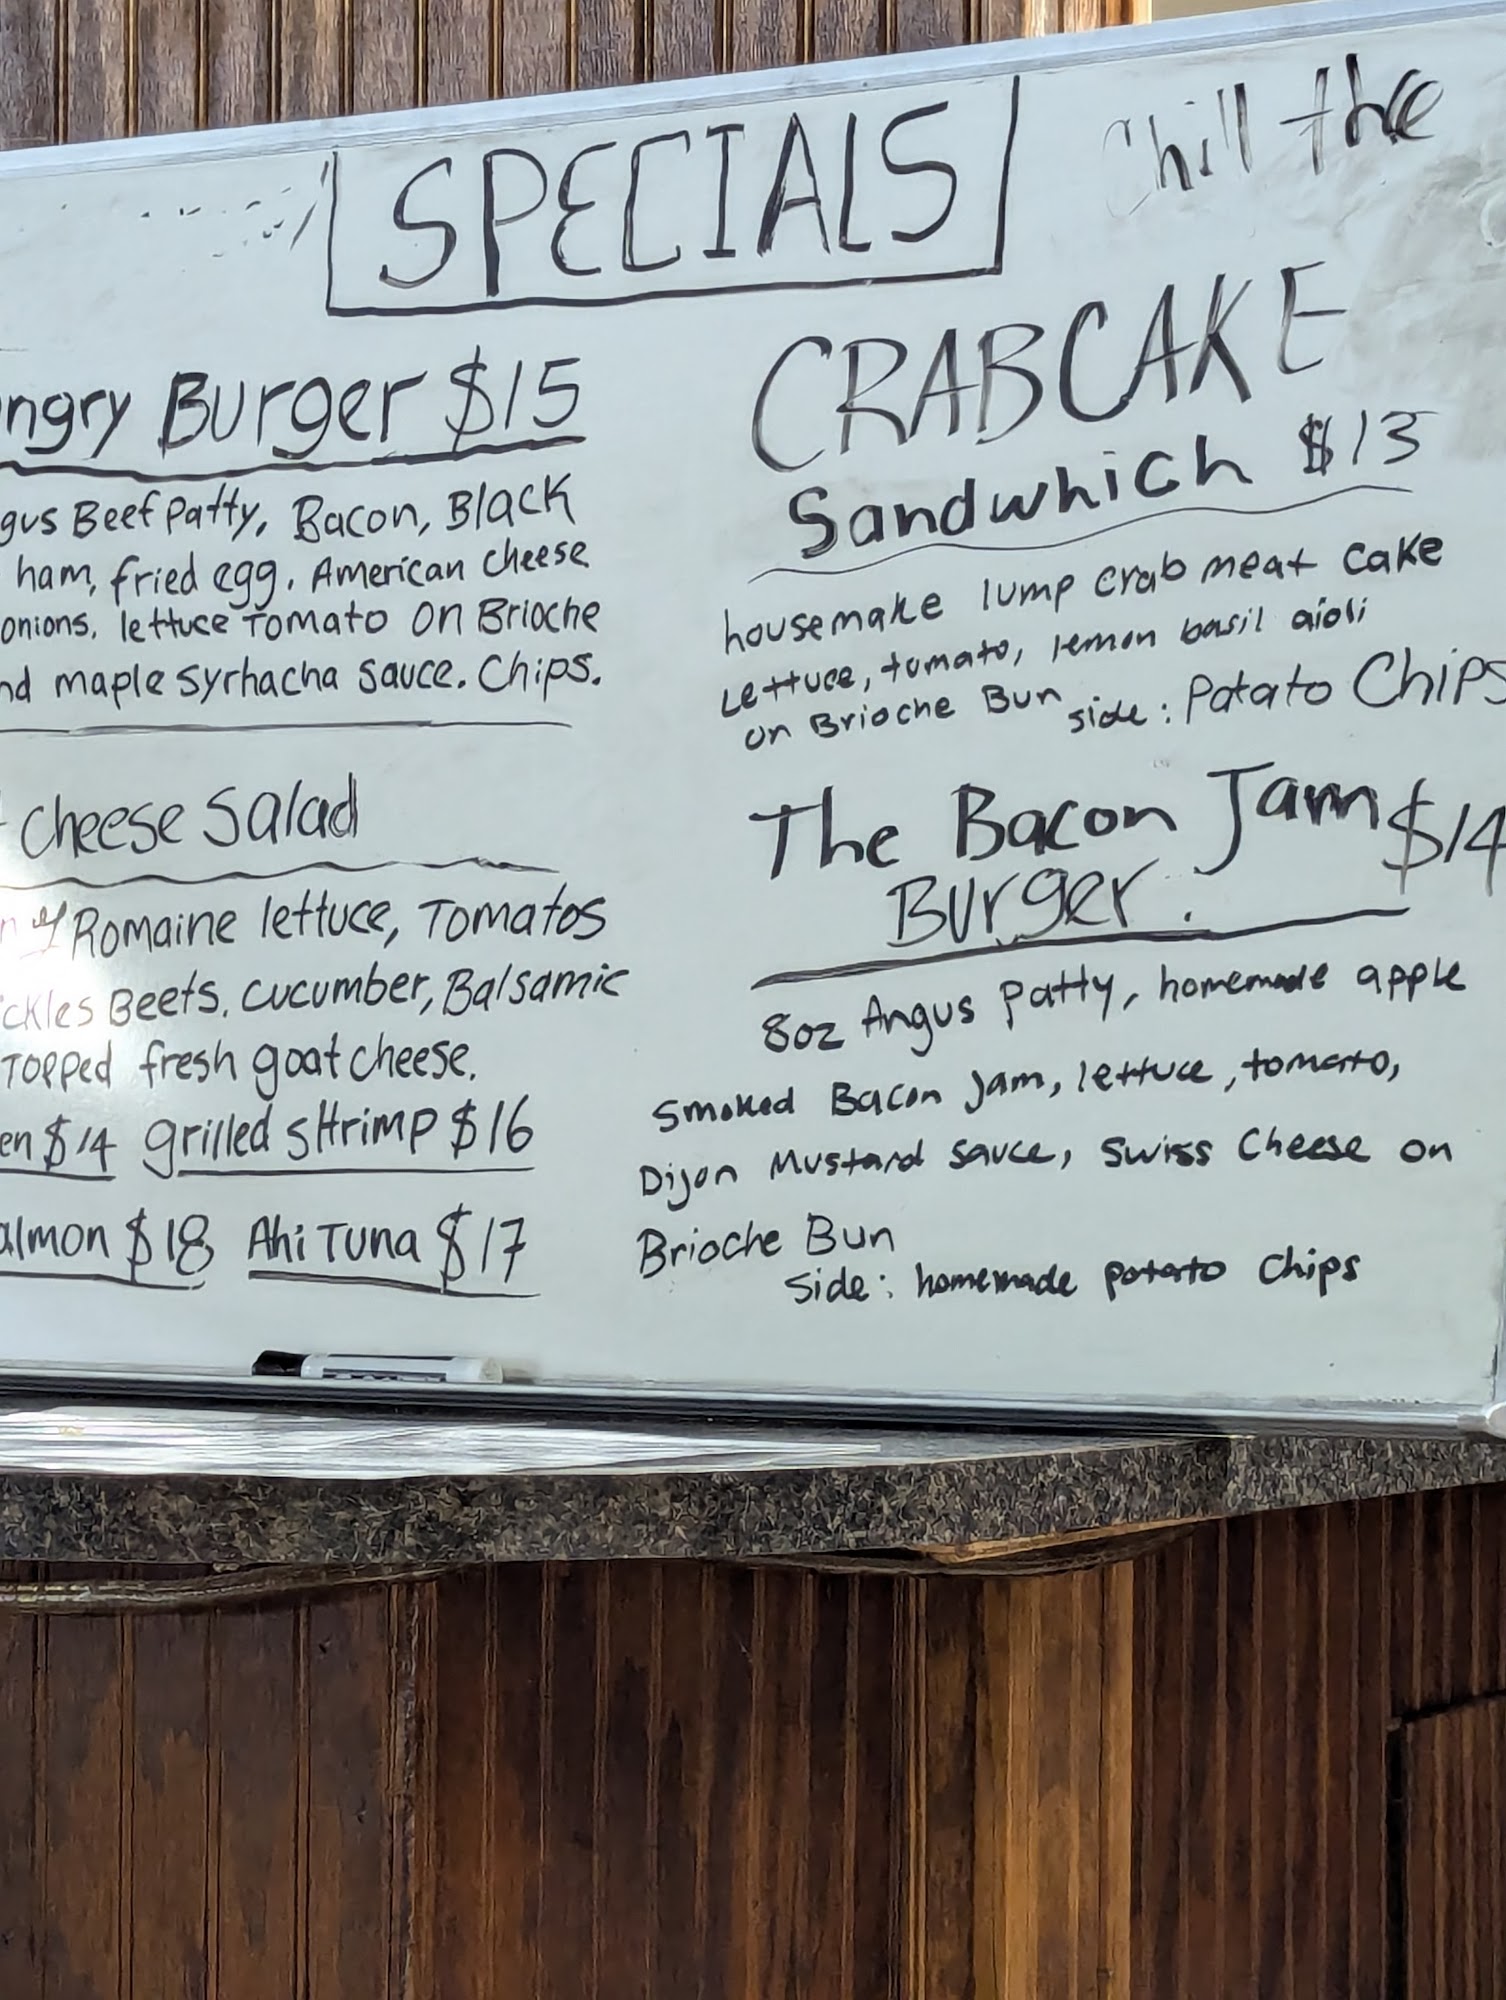 SPECIALS
Chill the
ngry Burger $15
gus Beef Patty, Bacon, Black
ham, fried egg, American cheese
onions, lettuce Tomato on Brioche
nd maple Syrhacha sauce. Chips.
cheese Salad
Romaine lettuce, Tomatos
ckles Beets, cucumber, Balsamic
Topped fresh goat cheese.
en $14 grilled sHrimp $16
almon $18 Ahi Tuna $17
CRABCAKE
Sandwhich $13
housemake lump crab meat cake
Lettuce, tomato, lemon basil aioli
on Brioche Bun side: Potato Chips
The Bacon Jam $14
Burger.
8oz Angus Patty, homemade apple
Smoked Bacon Jam, lettuce, tomato,
Dijon Mustard sauce, Swiss Cheese on
Brioche Bun
Side: homemade potato Chips